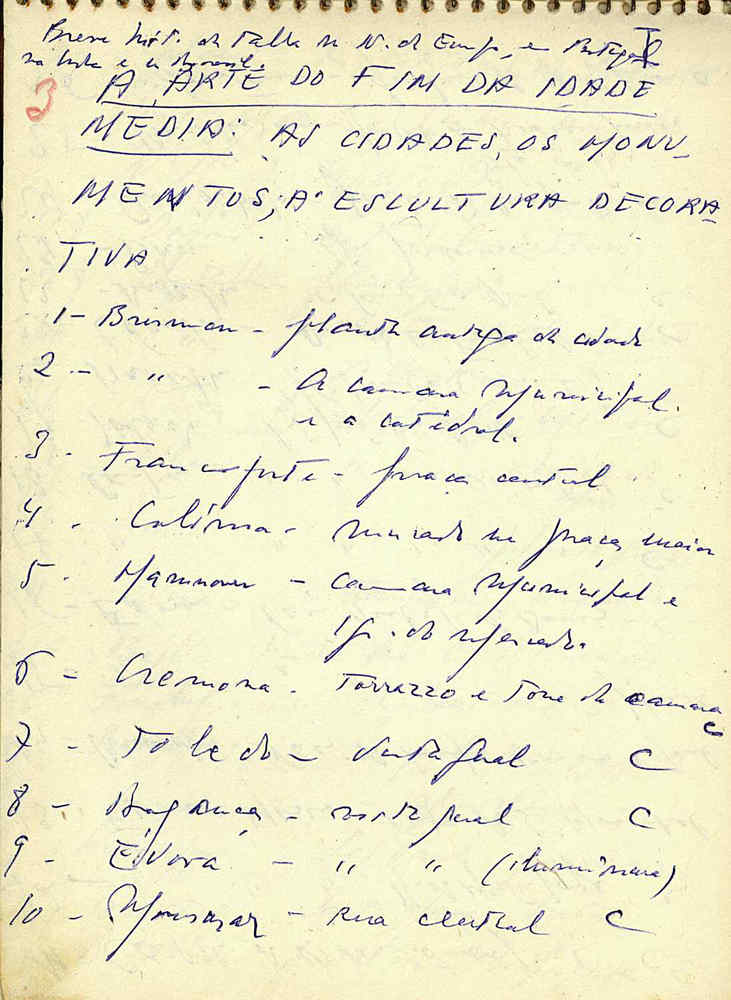 Breve hist. da talha no N. da Europa, em Portugal I
na Índia e no Brasil.
3
A ARTE DO FIM DA IDADE
MEDIA: AS CIDADES, OS MONU_
MENTOS, A ESCULTURA DECORA
TIVA
1 - Brisman - planta antiga da cidade
2. - " - A camara Municipal.
e a catedral.
3 - Francoforte - praça central
4 - Colónia - mercado na praça maior
5 - Hannover - camara Municipal e
Ig. do Mercado.
6 - Cremona - Torrazzo e Torre da camara
C
7 - Toledo - vista geral C
8 - Bragança - vista geral C
9 - Évora - " " (iluminura)
10 - Monsaraz - rua central C